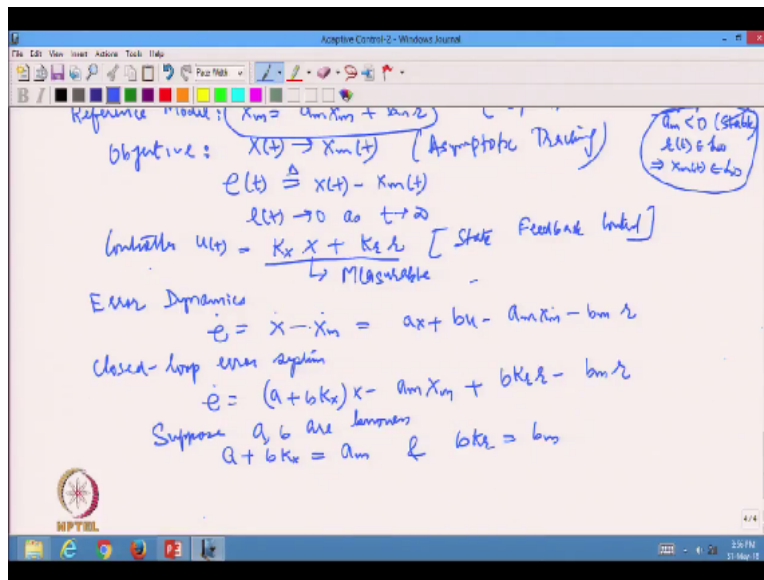 Adaptive Control-2 - Windows Journal
File Edit View Insert Actions Tools Help
Page Width
B I
Reference Model: ẋm = am xm + bm r
am < 0 (Stable)
r(t) ∈ L∞
⇒ xm(t) ∈ L∞
Objective: x(t) → xm(t) (Asymptotic Tracking)
e(t) ≜ x(t) - xm(t)
e(t) → 0 as t → ∞
Controller u(t) = Kx x + Kr r [State Feedback Control]
↳ Measurable
Error Dynamics
ė = ẋ - ẋm = ax + bu - am xm - bm r
Closed-loop error system
ė = (a + bKx) x - am xm + bKr r - bm r
Suppose a, b are known
a + bKx = am & bKr = bm
NPTEL
4/4
3:56 PM
31-May-18